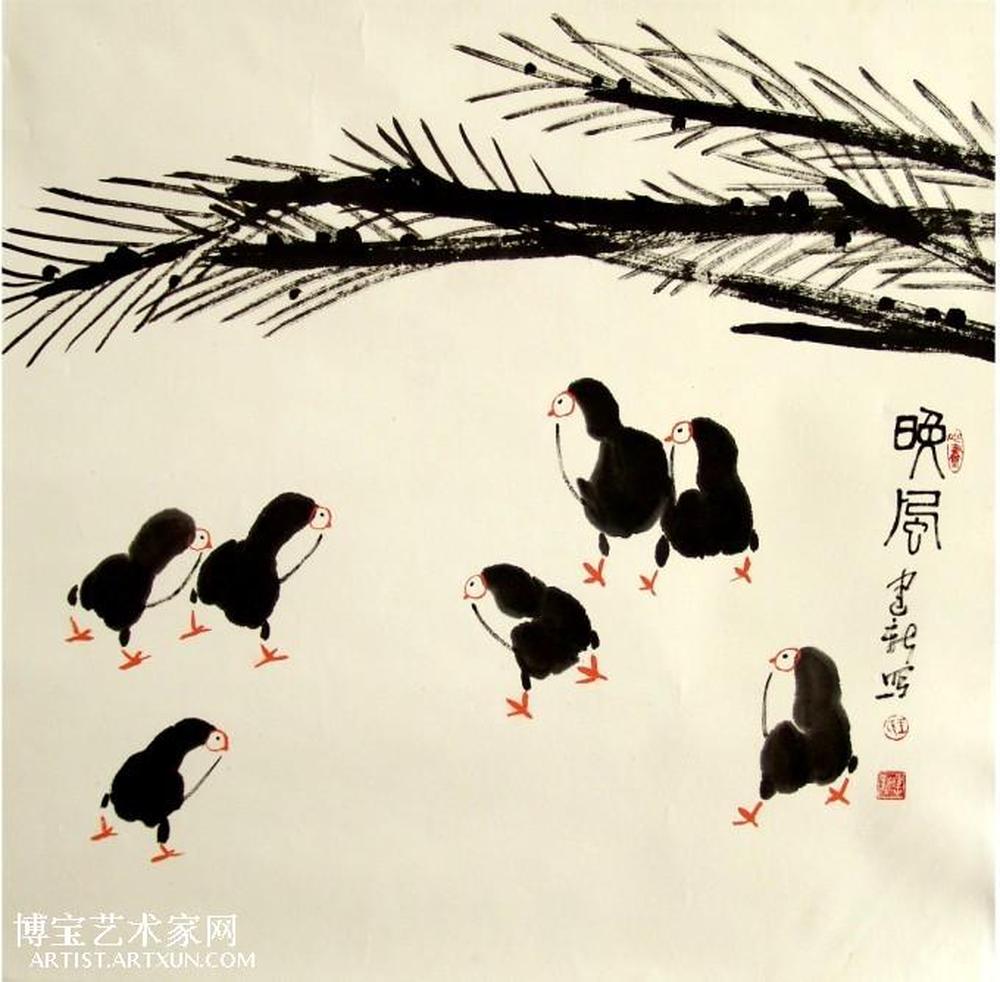 晚风
建新写
博宝艺术家网
ARTIST.ARTXUN.COM